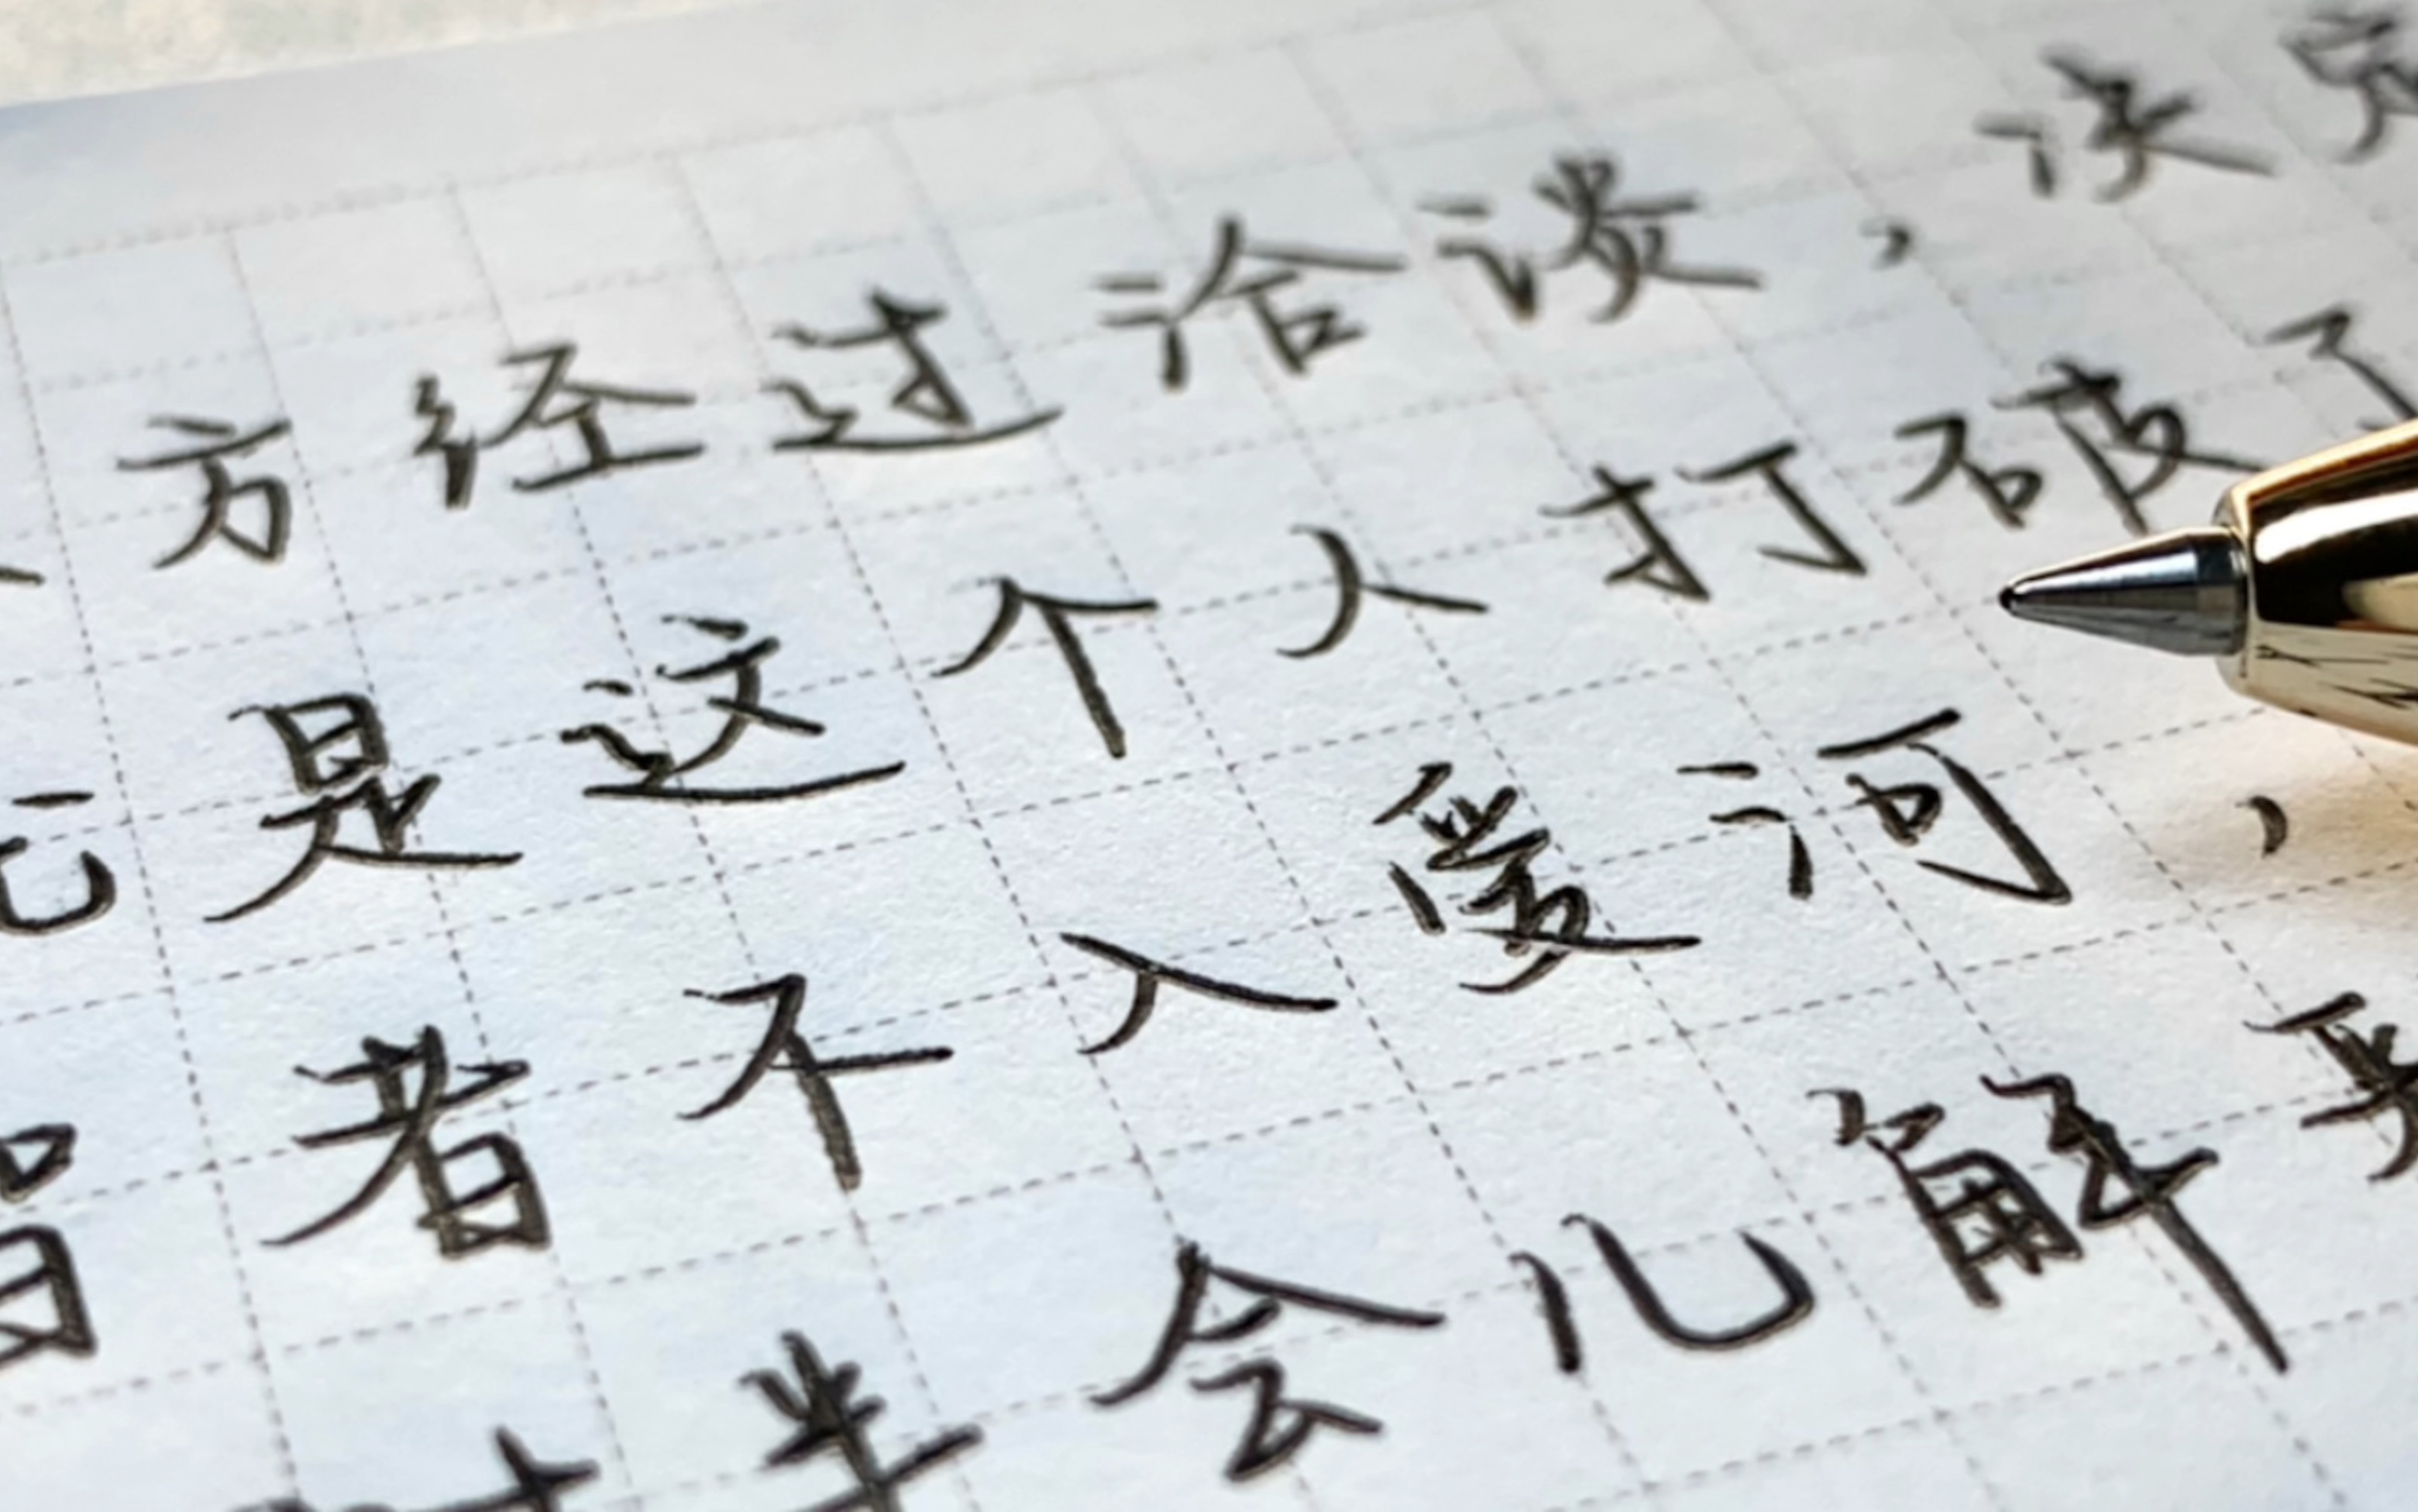 方经过洽谈，决定
是这个人打破了
者不入爱河，
半会儿解